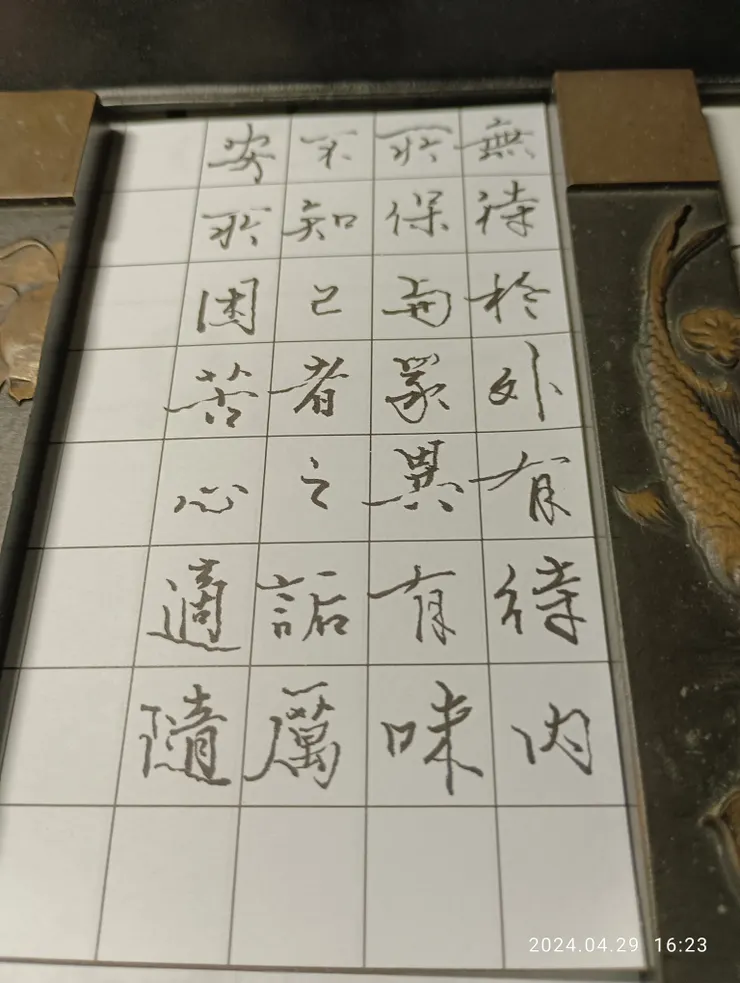 無待於外有待內
所保與眾異有味
不知己者之詬厲
安所困苦心適隨
2024.04.29 16:23